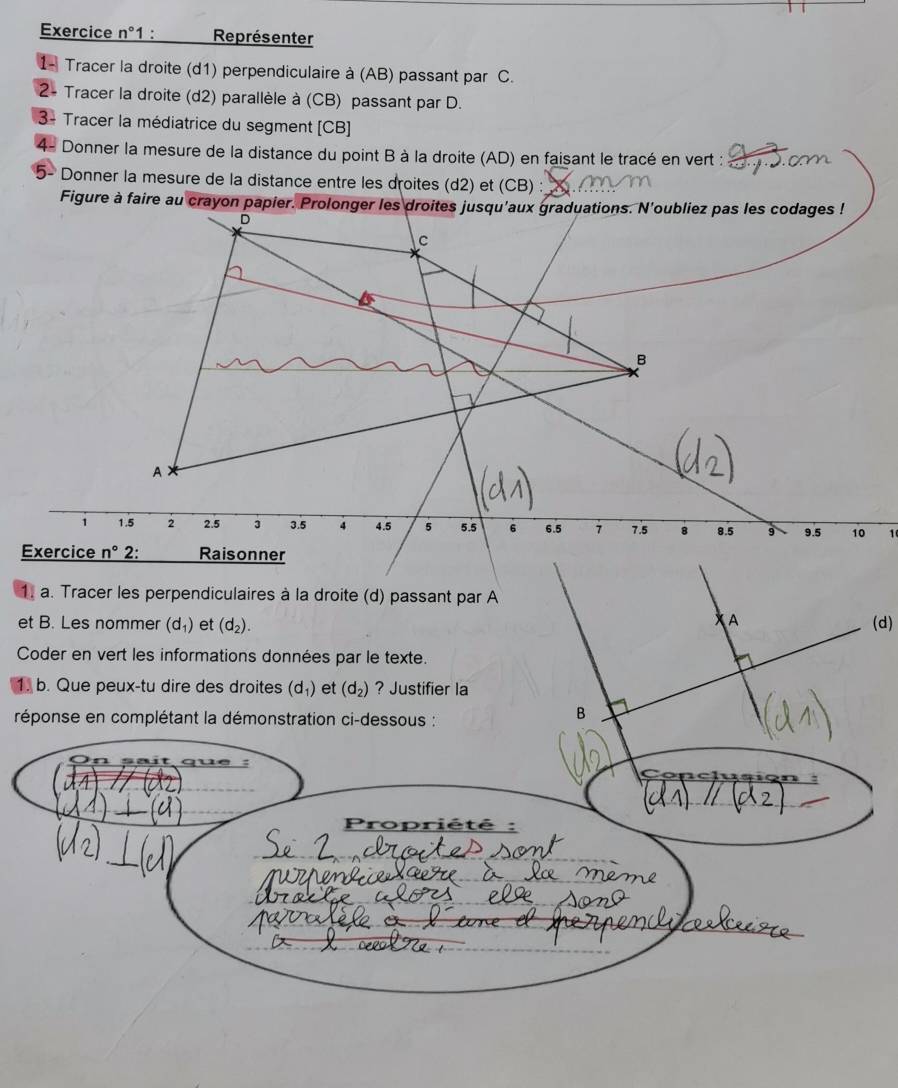 Exercice n°1 : Représenter
1- Tracer la droite (d1) perpendiculaire à (AB) passant par C.
2- Tracer la droite (d2) parallèle à (CB) passant par D.
3- Tracer la médiatrice du segment [CB]
4- Donner la mesure de la distance du point B à la droite (AD) en faisant le tracé en vert : 9,3 cm
5- Donner la mesure de la distance entre les droites (d2) et (CB) : mm
Figure à faire au crayon papier. Prolonger les droites jusqu'aux graduations. N'oubliez pas les codages !
D
C
B
A
(d2)
(d1)
1 1.5 2 2.5 3 3.5 4 4.5 5 5.5 6 6.5 7 7.5 8 8.5 9 9.5 10
Exercice n° 2: Raisonner
1. a. Tracer les perpendiculaires à la droite (d) passant par A
et B. Les nommer (d₁) et (d₂).
Coder en vert les informations données par le texte.
1. b. Que peux-tu dire des droites (d₁) et (d₂) ? Justifier la
réponse en complétant la démonstration ci-dessous :
A
(d)
B
(d1)
(d2)
On sait que :
(d1) // (d2)
(d1) ⊥ (d)
(d2) ⊥ (d)
Conclusion :
(d1) // (d2)
Propriété :
Si 2 droites sont
perpendiculaire à la même
droite alors elle sont
parralèle à l'une et perpendiculaire
à l'autre.